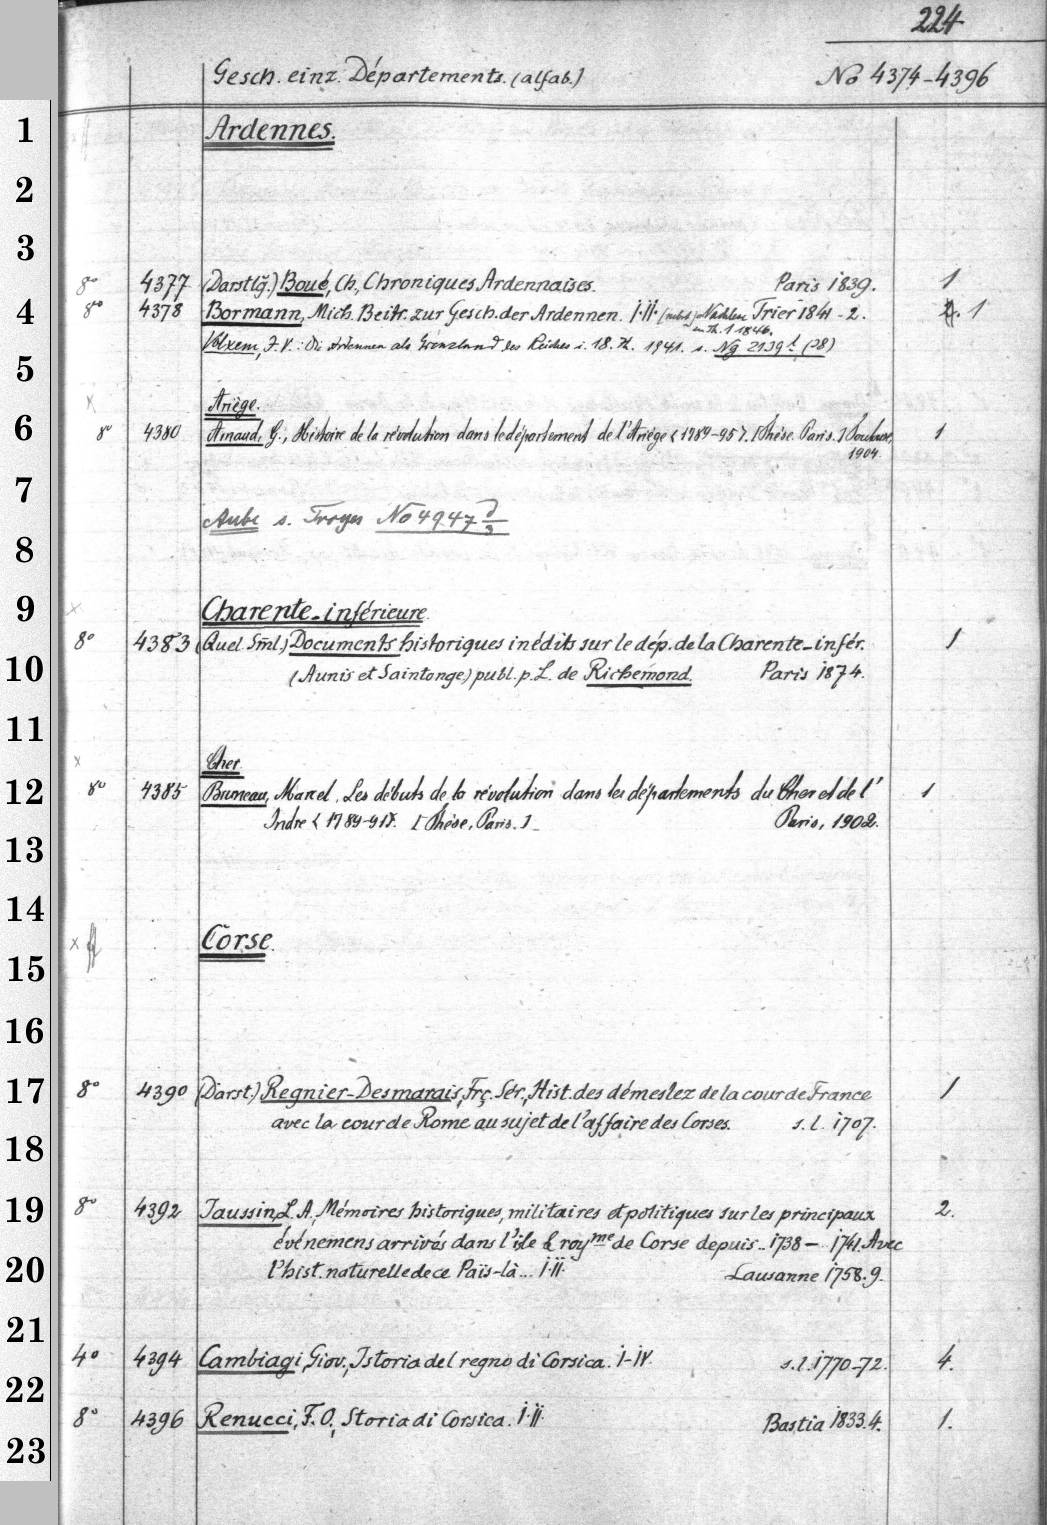 224
Gesch. einz. Départements. (alfab.) No 4374-4396
1 Ardennes.
2
3
8° 4377 (Darstlg.) Boué, Ch., Chroniques Ardennaises. Paris 1839. 1
4 8° 4378 Bormann, Mich. Beitr. zur Gesch. der Ardennen. I.II. Trier 1841-2. 1
zu Th. 1 1846.
Volxem, J. V.: Die Ardennen als Grenzland des Reiches i. 18. Jh. 1941. s. Ng 2139 (28)
5
Ariège.
6 8° 4380 Arnaud, G., Histoire de la révolution dans le département de l'Ariège <1789-95>. [Thèse. Paris.] Toulouse, 1
1904.
7
Aube s. Troyes No 4947 d/3
8
9 Charente-inférieure
8° 4383 (Quel. Sml.) Documents historiques inédits sur le dép. de la Charente-infér. 1
10 (Aunis et Saintonge) publ. p. L. de Richemond. Paris 1874.
11
x Cher
12 8° 4385 Bruneau, Marcel. Les débuts de la révolution dans les départements du Cher et de l' 1
Indre <1789-91>. [Thèse, Paris.] Paris, 1902.
13
14
x Corse.
15
16
17 8° 4390 (Darst.) Regnier-Desmarais, Frç. Sér., Hist. des démeslez de la cour de France 1
avec la cour de Rome au sujet de l'affaire des Corses. s. l. 1707.
18
19 8° 4392 Jaussin, L. A., Mémoires historiques, militaires et politiques sur les principaux 2.
événemens arrivés dans l'isle & roy.me de Corse depuis.. 1738 - 1741. Avec
20 l'hist. naturelle de ce Païs-là... I.II. Lausanne 1758.9.
21
4° 4394 Cambiagi, Giov., Istoria del regno di Corsica. I-IV. s. l. 1770-72. 4.
22
8° 4396 Renucci, F. O., Storia di Corsica. I.II. Bastia 1833.4. 1.
23